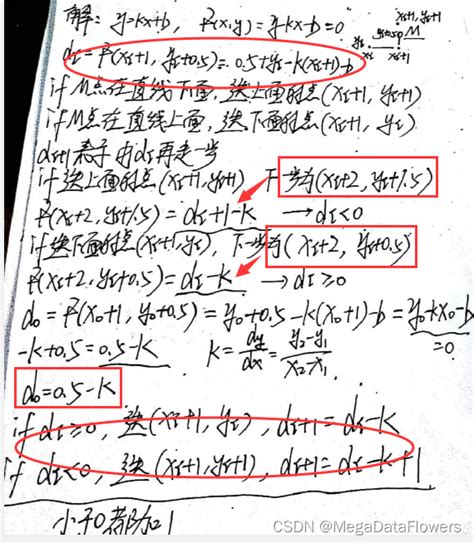 解: y=kx+b, F(x,y)=y-kx-b=0
xi+1, yi+1
yi+0.5 M
yi
xi xi+1
di=F(xi+1, yi+0.5)=0.5+yi-k(xi+1)-b
if M点在直线下面, 选上面的点(xi+1, yi+1)
if M点在直线上面, 选下面的点(xi+1, yi)
di+1表示 由di再走一步
if 选上面的点(xi+1, yi+1) 下一步为(xi+2, yi+1.5)
F(xi+2, yi+1.5)=di+1-k →di<0
if选下面的点(xi+1, yi), 下一步为(xi+2, yi+0.5)
F(xi+2, yi+0.5)=di-k →di≥0
d0=F(x0+1, y0+0.5)=y0+0.5-k(x0+1)-b=y0-kx0-b
=0
-k+0.5=0.5-k k=dy/dx=y2-y1/x2-x1
d0=0.5-k
if di≥0, 选(xi+1, yi), di+1=di-k
if di<0, 选(xi+1, yi+1), di+1=di-k+1
小于0都加1
CSDN @MegaDataFlowers